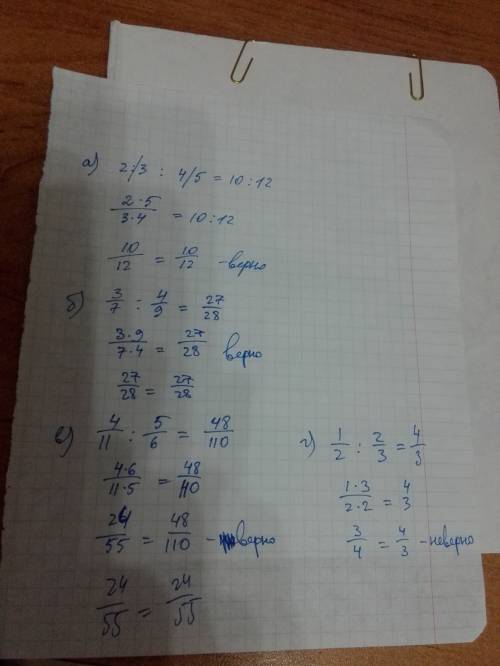 а) 2/3 : 4/5 = 10:12
2·5/3·4 = 10:12
10/12 = 10/12 - верно
б) 3/7 : 4/9 = 27/28
3·9/7·4 = 27/28 верно
27/28 = 27/28
в) 4/11 : 5/6 = 48/110
4·6/11·5 = 48/110
24/55 = 48/110 - верно
24/55 = 24/55
г) 1/2 : 2/3 = 4/3
1·3/2·2 = 4/3
3/4 = 4/3 - неверно